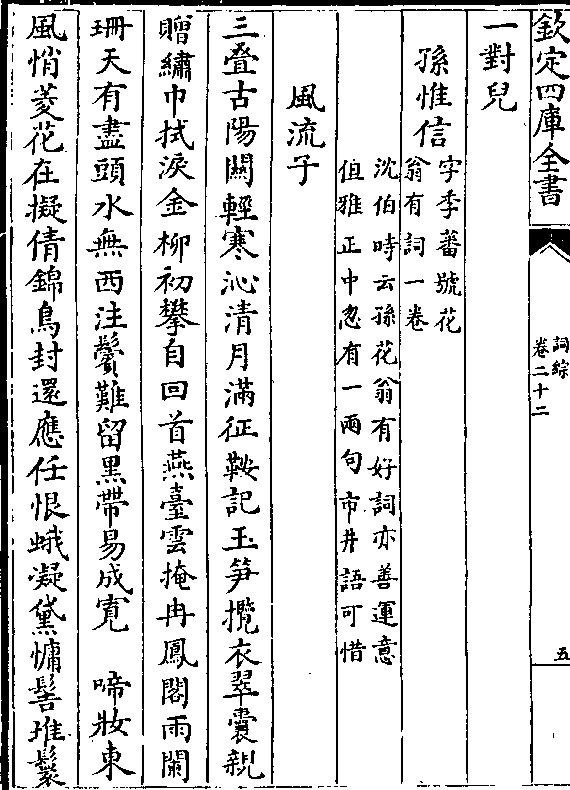 欽定四庫全書
詞綜
卷二十二
五
一對兒
孫惟信
字季蕃號花
翁有詞一卷
沈伯時云孫花翁有好詞亦善運意
但雅正中忽有一兩句市井語可惜
風流子
三叠古陽關輕寒沁清月滿征鞍記玉筍攬衣翠囊親
贈繡巾拭淚金柳初攀自回首燕臺雲掩冉鳳閣雨闌
珊天有盡頭水無西注鬢難留黑帶易成寬　啼妝東
風悄菱花在擬倩錦鳥封還應任恨蛾凝黛慵髻堆鬟